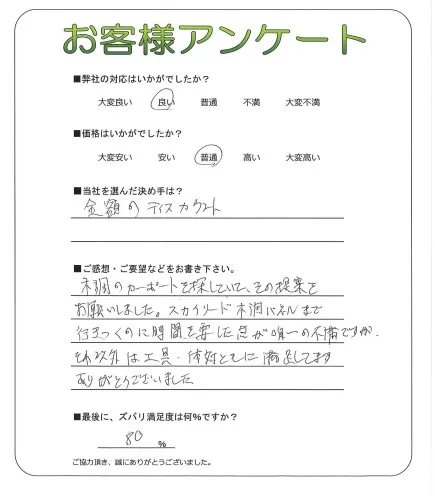 お客様アンケート
■弊社の対応はいかがでしたか？
大変良い 良い 普通 不満 大変不満
■価格はいかがでしたか？
大変安い 安い 普通 高い 大変高い
■当社を選んだ決め手は？
金額のディスカウント
■ご感想・ご要望などをお書き下さい。
木調のカーポートを探していて、その提案を
お願いしました。スカイリード木調パネルまで
行きつくのに時間を要した点が唯一の不満ですが、
それ以外は工具・体対ともに満足してます
ありがとうございました
■最後に、ズバリ満足度は何％ですか？
80 ％
ご協力頂き、誠にありがとうございました。